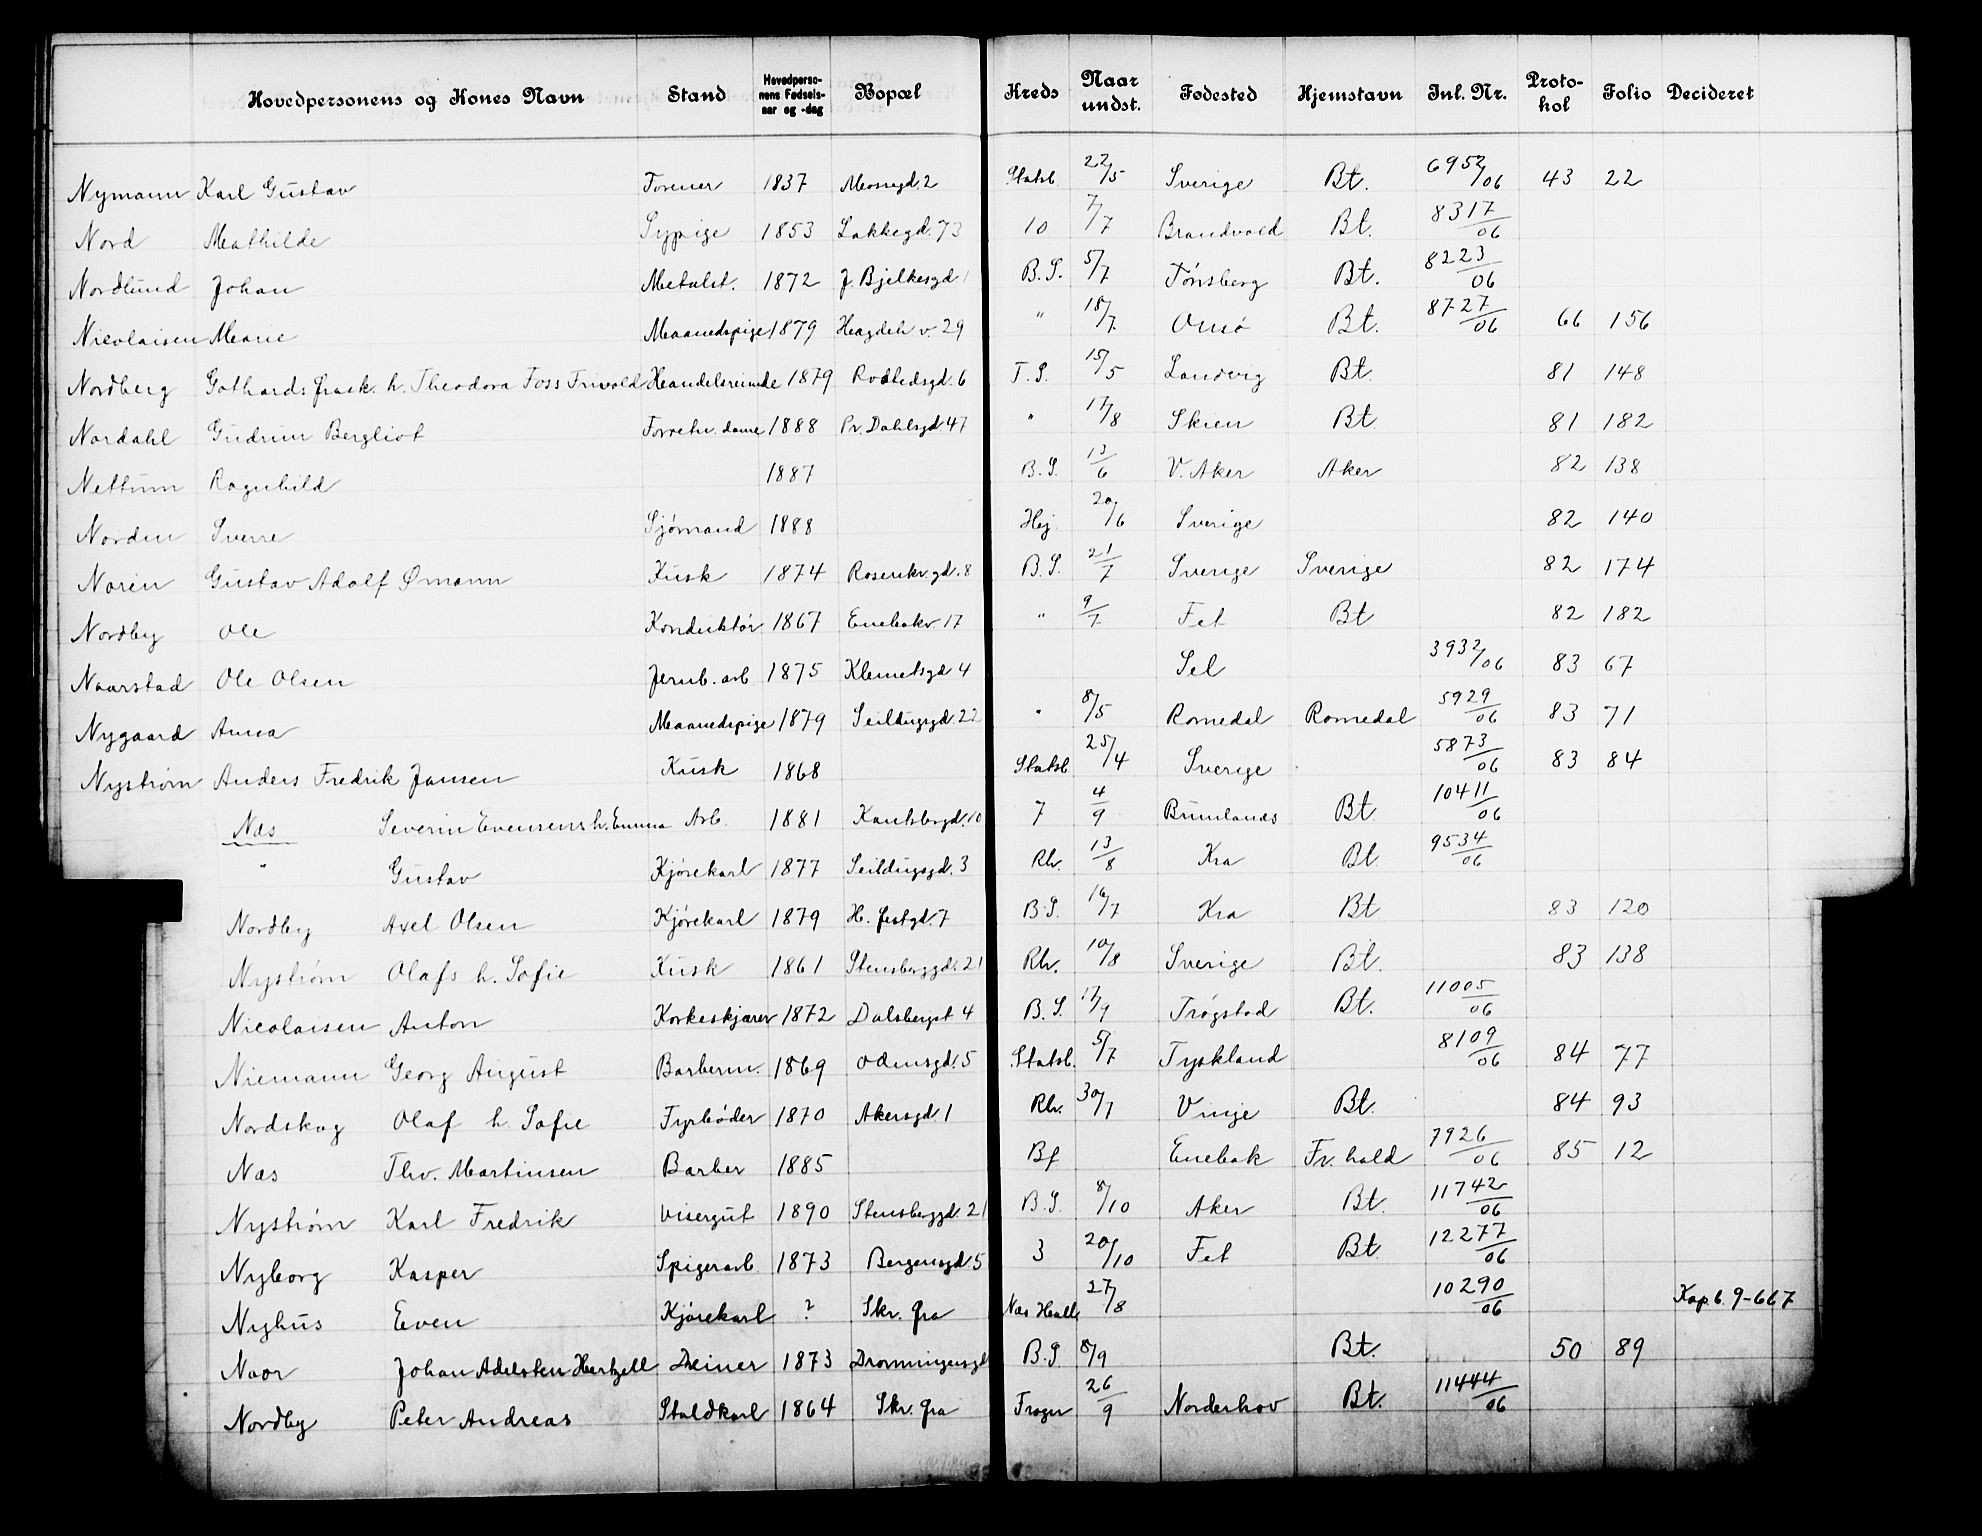 Hovedpersonens og Kones Navn | Stand | Hovedpersonens Fødselsaar og -dag | Bopæl | Kreds | Naar undst. | Fødested | Hjemstavn | Inl. Nr. | Protokol | Folio | Decideret
Nymann Karl Gustav | 1837 | Mossegd. 2 | Statsb. | 22/5 | Sverige | Bt. | 6952/06 | 43 | 22
Nord Mathilde | Sypige | 1853 | Lakkegd. 73 | 10 | 7/7 | Brandvold | Bt. | 8317/06
Nordlund Johan | Metalst. | 1872 | J. Bjelkesgd 1 | B.S. | 5/7 | Tønsberg | Bt. | 8223/06
Nicolaisen Marie | Maanedspige | 1879 | Heagdeh v. 29 | " | 18/7 | Onsø | Bt. | 8727/06 | 66 | 156
Nordberg Gothards frask. h. Theodora Foss Frivold | Handelsreisende | 1879 | Rodfedsgd. 6 | T.S. | 15/5 | Landvig | Bt. | 81 | 148
Nordahl Gudrun Bergliot | Forretn. dame | 1888 | Pr. Dahlsgd 47 | " | 17/8 | Skien | Bt. | 81 | 182
Nettum Ragnhild | 1887 | B.S. | 13/6 | V. Aker | Aker | 82 | 138
Norden Sverre | Sjømand | 1888 | Hej. | 20/6 | Sverige | 82 | 140
Noren Gustav Adolf Ømann | Kusk | 1874 | Rosenkr. gd. 8 | B.S. | 21/7 | Sverige | Sverige | 82 | 174
Nordby Ole | Konduktør | 1867 | Enebakv 17 | " | 9/7 | Fet | Bt | 82 | 182
Naarstad Ole Olsen | Jernb. arb | 1875 | Klemetsgd 4 | Sel | 3932/06 | 83 | 67
Nygaard Anna | Maanedspige | 1879 | Seildugsgd. 22 | " | 8/5 | Romedal | Romedal | 5929/06 | 83 | 71
Nystrøm Anders Fredrik Jansen | Kusk | 1868 | Statsb | 25/4 | Sverige | 5873/06 | 83 | 84
Næs Severin Evensens h. Emma | Arb. | 1881 | Kantsbergd. 10 | 7 | 4/9 | Brunlanæs | Bt. | 10411/06
" Gustav | Kjørekarl | 1877 | Seildugsgd. 3 | Rh. | 13/8 | Kra | Bt. | 9534/06
Nordby Axel Olsen | Kjørekarl | 1879 | H. festgd. 7 | B.S. | 16/7 | Kra | Bt | 83 | 120
Nystrøm Olafs h. Sofie | Kusk | 1861 | Stensberggd. 21 | Rh. | 10/8 | Sverige | Bt. | 83 | 138
Nicolaisen Anton | Korkeskjærer | 1872 | Dalsbergst 4 | B.S. | 17/9 | Trøgstad | Bt. | 11005/06
Niemann Georg August | Barberm. | 1869 | Odinsgd. 5 | Statsb. | 5/7 | Tyskland | 8109/06 | 84 | 77
Nordskog Olaf h. Sofie | Fyrbøder | 1870 | Akersgd 1 | Rh. | 30/7 | Vinje | Bt. | 84 | 93
Næs Thv. Martinsen | Barber | 1885 | Bf | Enebak | Fr. hald | 7926/06 | 85 | 12
Nystrøm Karl Fredrik | Visergut | 1890 | Stensberggd. 21 | B.S. | 8/10 | Aker | Bt. | 11742/06
Nyborg Kasper | Spigerarb. | 1873 | Bergensgd 5 | 3 | 20/10 | Fet | Bt. | 12277/06
Nyhus Even | Kjørekarl | ? | Skr. fra | Nes Hedb | 27/8 | 10290/06 | Kop b. 9-667
Naar Johan Adelsten Hertzell | 1873 | Dronningensgd | B.S | 8/9 | Bt. | 50 | 89
Nordby Peter Andreas | Staldkarl | 1864 | Skr. fra | Frogn | 26/9 | Norderhov | Bt. | 11444/06